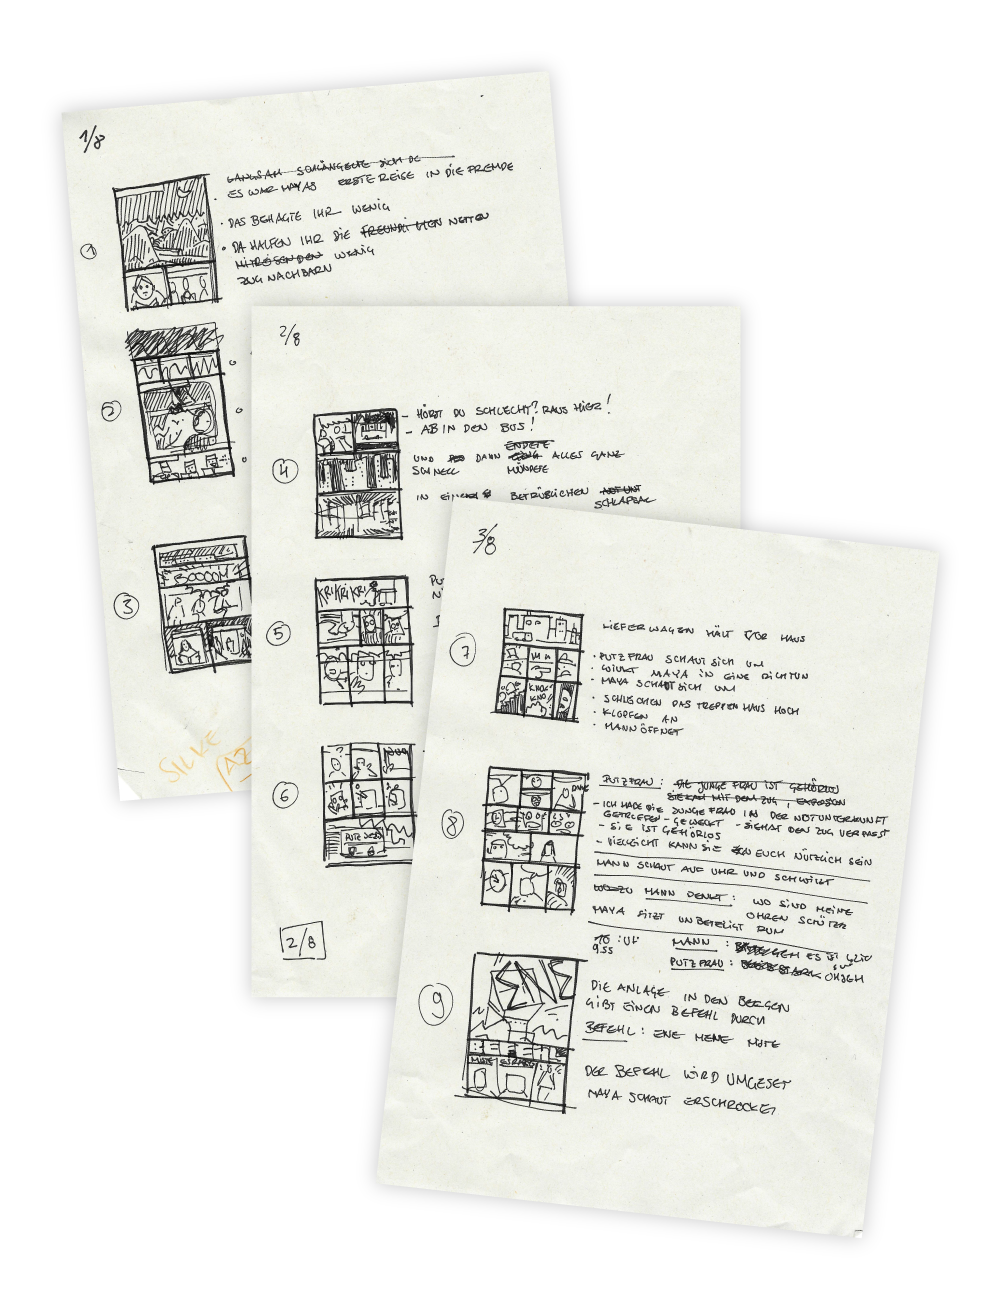 1/8
LANGSAM SCHLÄNGELTE SICH DE
ES WAR MAYAS ERSTE REISE IN DIE FREMDE
1
· DAS BEHAGTE IHR WENIG
· DA HALFEN IHR DIE FREUNDLICHEN NETTEN
MITREISENDEN WENIG
ZUGNACHBARN
2
3
BOOOOM
SILKE
2/8
4
- HÖRST DU SCHLECHT? RAUS HIER!
- AB IN DEN BUS!
ENDETE
UND DANN GING ALLES GANZ
SCHNELL MÜNDETE
IN BETRÜBLICHEN
SCHLAFSAAL
5
KRIKRIKRI
6
2/8
3/8
7
LIEFERWAGEN HÄLT VOR HAUS
· PUTZFRAU SCHAUT SICH UM
· WINKT MAYA IN EINE RICHTUN
· MAYA SCHAUT SICH UM
· SCHLEICHEN DAS TREPPENHAUS HOCH
· KLOPFEN AN
· MANN ÖFFNET
8
PUTZFRAU: DIE JUNGE FRAU IST GEHÖRLOS
SIE KAM MIT DEM ZUG, EXPLOSION
- ICH HABE DIE JUNGE FRAU IN DER NOTUNTERKUNFT
GETROFFEN - GEWECKT - SIE HAT DEN ZUG VERPASST
- SIE IST GEHÖRLOS
- VIELLEICHT KANN SIE EUCH NÜTZLICH SEIN
MANN SCHAUT AUF UHR UND SCHWITZT
WOZU MANN DENKT: WO SIND MEINE
OHRENSCHÜTZER
MAYA SITZT UNBETEILIGT RUM
9.55
MANN: ES
PUTZFRAU:
9
DIE ANLAGE IN DEN BERGEN
GIBT EINEN BEFEHL DURCH
BEFEHL: ENE MENE MUTE
MUTE
DER BEFEHL WIRD UMGESET
MAYA SCHAUT ERSCHROCKEN